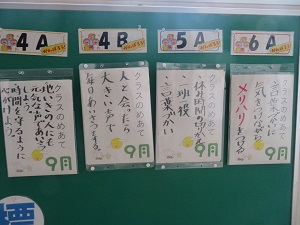 4A
4B
5A
6A
クラスのめあて
地いきの人にも
元気な声であいさつ
しよう。
時間を守るように
心がけよう。
9月
クラスのめあて
人と会ったら
大きい声で
毎日あいさつする。
9月
クラスのめあて
・休み時間の
・一班一役
・言葉づかい
9月
クラスのめあて
言葉づかいに
気をつけながら
メリハリをつける
9月
標